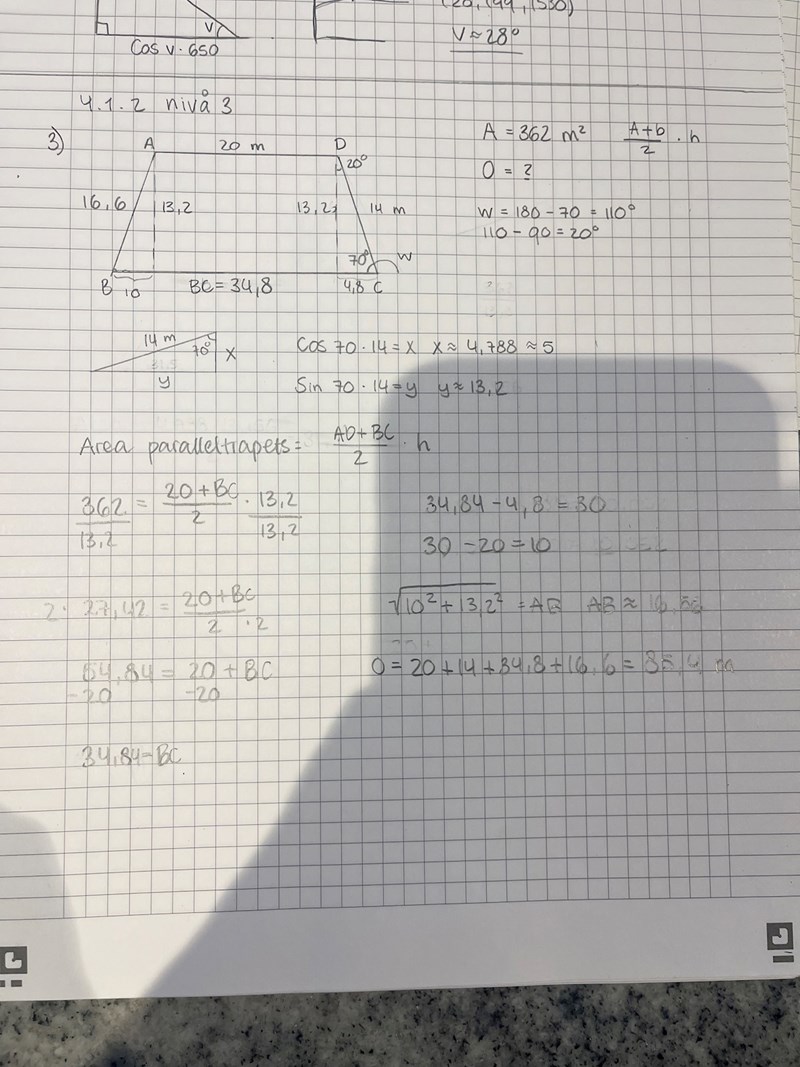 (20,144,1530)
V
Cos v · 650
V ≈ 28°
4.1.2 nivå 3
3)
A 20 m D
20°
16,6 13,2 13,2 14 m
70° W
B 10 BC = 34,8 4,8 C
A = 362 m² (A+b)/2 · h
O = ?
W = 180 - 70 = 110°
110 - 90 = 20°
14 m 70° x
y
Cos 70 · 14 = x x ≈ 4,788 ≈ 5
Sin 70 · 14 = y y ≈ 13,2
Area paralleltrapets = (AD + BC)/2 · h
362/13,2 = (20 + BC)/2 · 13,2/13,2
2 · 27,42 = (20 + BC)/2 · 2
54,84 = 20 + BC
-20 -20
34,84 = BC
34,84 - 4,8 = 30
30 - 20 = 10
√(10² + 13,2²) = AB AB ≈
O = 20 + 14 + 34,8 + 16,6 = 85,4 m